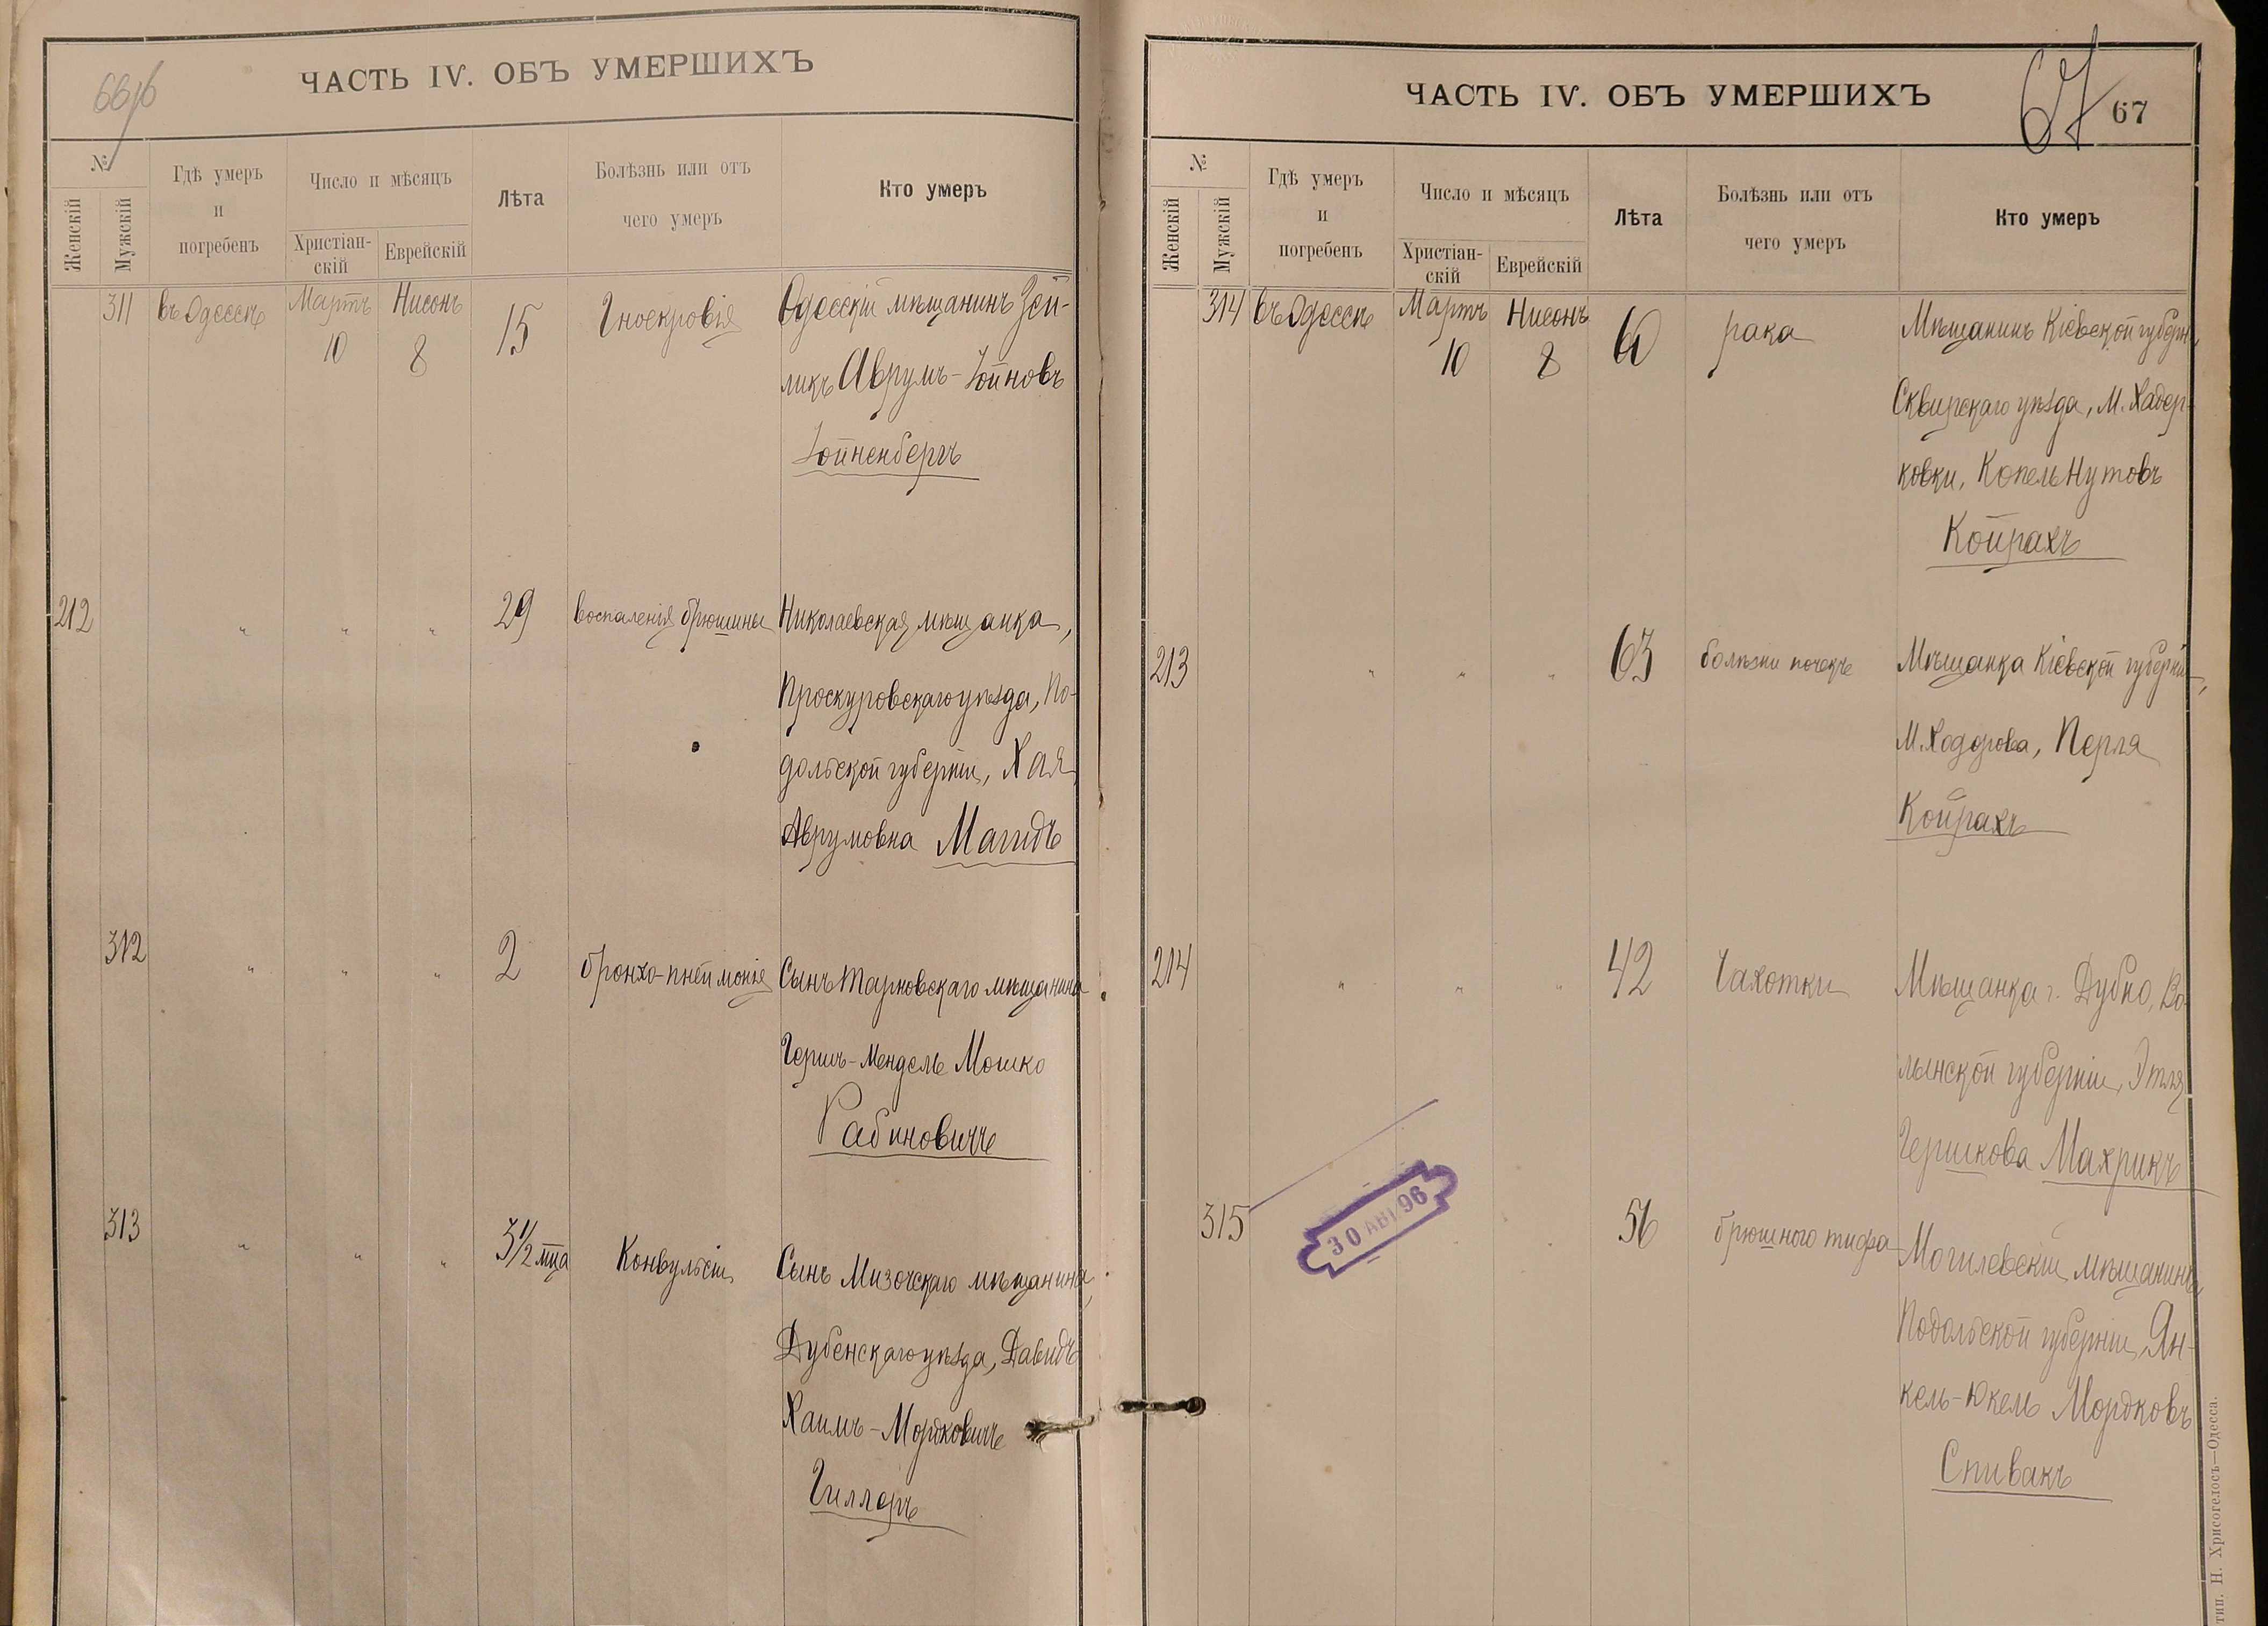 66/б
ЧАСТЬ IV. ОБЪ УМЕРШИХЪ
№
Женскій
Мужскій
Гдѣ умеръ
и
погребенъ
Число и мѣсяцъ
Христіан-
скій
Еврейскій
Лѣта
Болѣзнь или отъ
чего умеръ
Кто умеръ
311 въ Одессѣ Мартъ 10 Нисонъ 8 15 Гноекровія Одесскій мѣщанинъ Зей-
ликъ Аврумъ-Іойновъ
Іойненбергъ
212 " " " 29 воспаленія брюшины Николаевская мѣщанка,
Проскуровскаго уѣзда, По-
дольской губерніи, Хая
Аврумовна Магидъ
312 " " " 2 бронхо-пнеймонія Сынъ Тарновскаго мѣщанина
Гершъ-Мендель Мошко
Рабиновичъ
313 " " " 3½ мца Конвульсіи Сынъ Мизочскаго мѣщанина,
Дубенскаго уѣзда, Давидъ
Хаимъ-Мордковичъ
Гиллеръ
ЧАСТЬ IV. ОБЪ УМЕРШИХЪ
67
67
№
Женскій
Мужскій
Гдѣ умеръ
и
погребенъ
Число и мѣсяцъ
Христіан-
скій
Еврейскій
Лѣта
Болѣзнь или отъ
чего умеръ
Кто умеръ
314 въ Одессѣ Мартъ 10 Нисонъ 8 60 рака Мѣщанинъ Кіевской губерн.,
Сквирскаго уѣзда, М. Хадор-
ковки, Копель Нутовъ
Койрахъ
213 " " " 63 болѣзни почекъ Мѣщанка Кіевской губерніи,
М. Ходорова, Перля
Койрахъ
214 " " " 42 Чахотки Мѣщанка г. Дубно, Во-
лынской губерніи, Этля
Гершкова Махрикъ
315 30 АВГ 96 " 56 брюшного тифа Могилевскій мѣщанинъ
Подольской губерніи, Ян-
кель-Юкель Мордковъ
Спивакъ
тип. Н. Хрисогелосъ—Одесса.